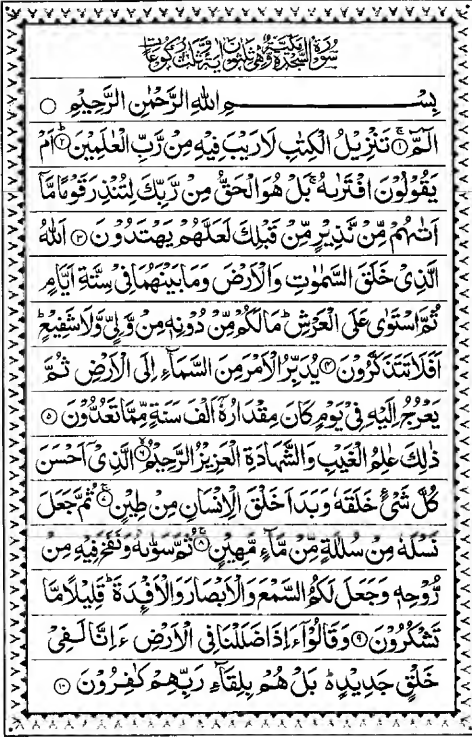 سورة السجدة مكية وهي ثلثون اية وثلث ركوعات
بِسْمِ اللهِ الرَّحْمٰنِ الرَّحِيْمِ ○
الٓمّٓ ۚ﴿۱﴾ تَنْزِيْلُ الْكِتٰبِ لَا رَيْبَ فِيْهِ مِنْ رَّبِّ الْعٰلَمِيْنَ ؕ﴿۲﴾ اَمْ
يَقُوْلُوْنَ افْتَرٰىهُ ۚ بَلْ هُوَ الْحَقُّ مِنْ رَّبِّكَ لِتُنْذِرَ قَوْمًا مَّاۤ
اَتٰىهُمْ مِّنْ نَّذِيْرٍ مِّنْ قَبْلِكَ لَعَلَّهُمْ يَهْتَدُوْنَ ﴿۳﴾ اَللهُ
الَّذِيْ خَلَقَ السَّمٰوٰتِ وَالْاَرْضَ وَمَا بَيْنَهُمَا فِيْ سِتَّةِ اَيَّامٍ
ثُمَّ اسْتَوٰى عَلَى الْعَرْشِ ؕ مَا لَكُمْ مِّنْ دُوْنِهٖ مِنْ وَّلِيٍّ وَّلَا شَفِيْعٍ ؕ
اَفَلَا تَتَذَكَّرُوْنَ ﴿۴﴾ يُدَبِّرُ الْاَمْرَ مِنَ السَّمَآءِ اِلَى الْاَرْضِ ثُمَّ
يَعْرُجُ اِلَيْهِ فِيْ يَوْمٍ كَانَ مِقْدَارُهٗۤ اَلْفَ سَنَةٍ مِّمَّا تَعُدُّوْنَ ﴿۵﴾
ذٰلِكَ عٰلِمُ الْغَيْبِ وَالشَّهَادَةِ الْعَزِيْزُ الرَّحِيْمُ ۙ﴿۶﴾ الَّذِيْۤ اَحْسَنَ
كُلَّ شَيْءٍ خَلَقَهٗ وَبَدَاَ خَلْقَ الْاِنْسَانِ مِنْ طِيْنٍ ۚ﴿۷﴾ ثُمَّ جَعَلَ
نَسْلَهٗ مِنْ سُلٰلَةٍ مِّنْ مَّآءٍ مَّهِيْنٍ ۚ﴿۸﴾ ثُمَّ سَوّٰىهُ وَنَفَخَ فِيْهِ مِنْ
رُّوْحِهٖ وَجَعَلَ لَكُمُ السَّمْعَ وَالْاَبْصَارَ وَالْاَفْـِٕدَةَ ؕ قَلِيْلًا مَّا
تَشْكُرُوْنَ ﴿۹﴾ وَقَالُوْۤا ءَاِذَا ضَلَلْنَا فِي الْاَرْضِ ءَاِنَّا لَفِيْ
خَلْقٍ جَدِيْدٍ ؕ۬ بَلْ هُمْ بِلِقَآءِ رَبِّهِمْ كٰفِرُوْنَ ﴿۱۰﴾